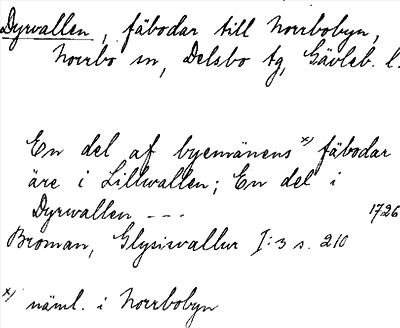 Dyrvallen, fäbodar till Norrbobyn,
Norrbo sn, Delsbo tg, Gävleb. l.
En del af byemänens x) fäbodar
äre i Lillwallen; En del i
Dyrwallen --- 1726
Broman, Glysisvallur I:3 s. 210
x) näml. i Norrbobyn